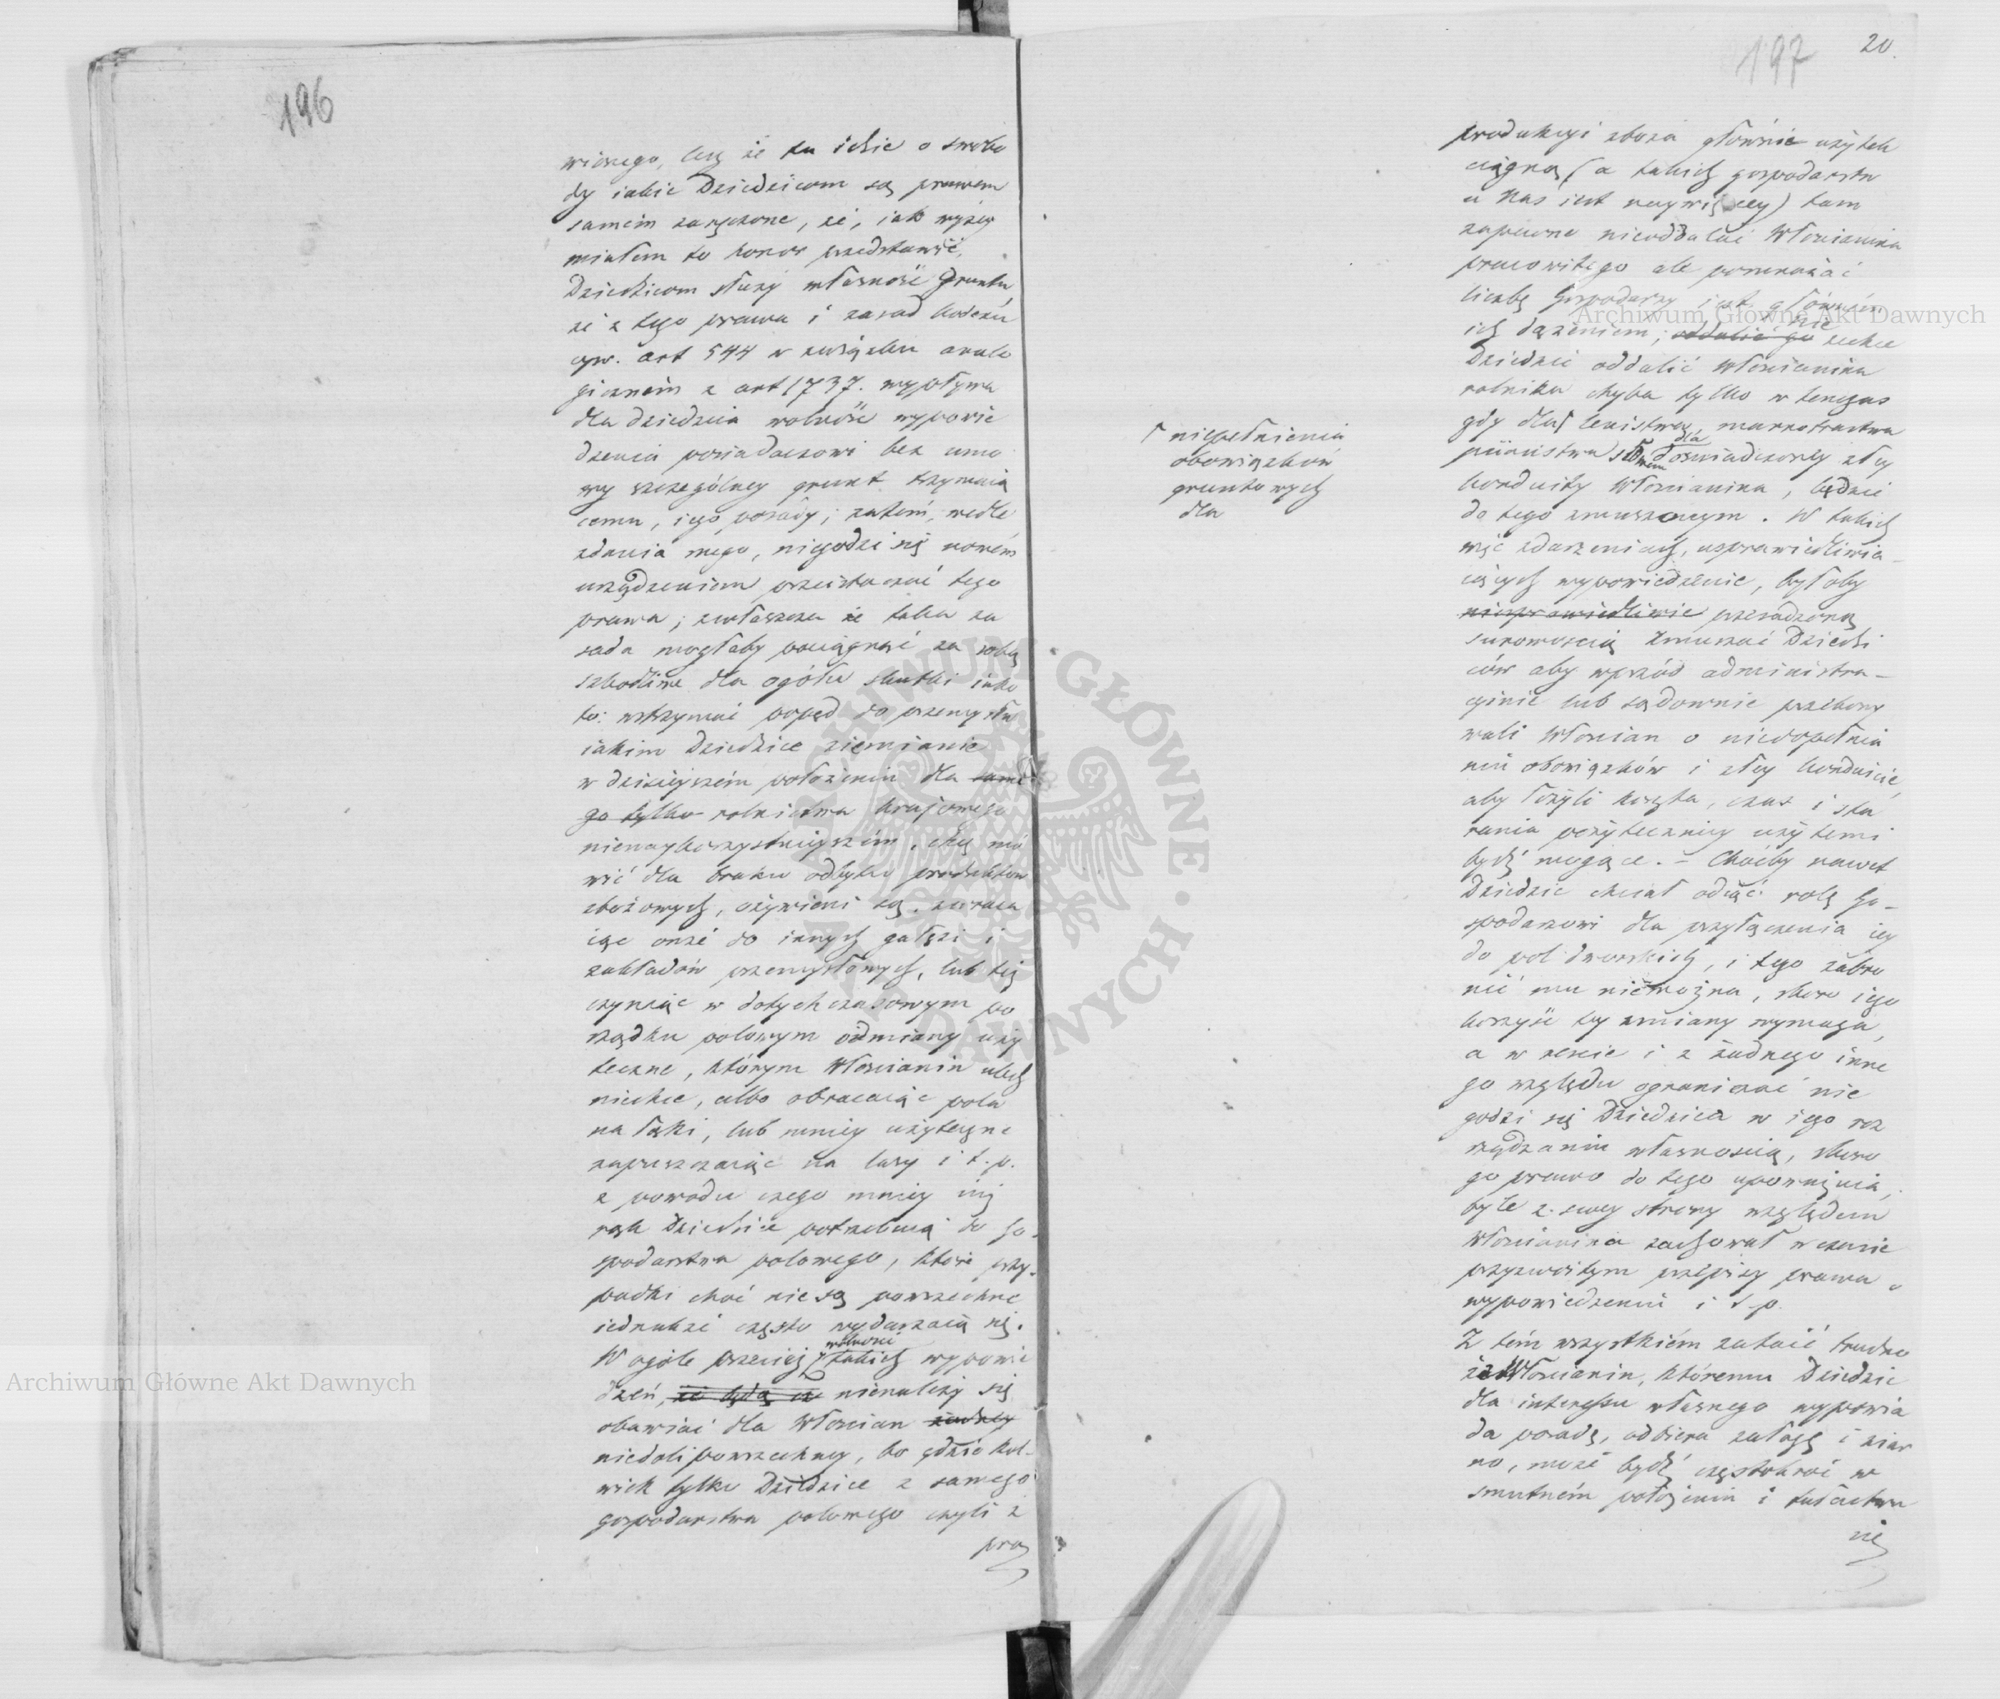 196
wionego, lecz że tu idzie o swobo
dy iakie Dziedzicom są prawem
samem zaręczone, że, iak wyżey
miałem to honor przedstawić,
Dziedzicom służy własność Gruntu,
że z tego prawa i zasad kodexu
cyw. art 544 w związku analo
gicznem z art 1737. wypływa
dla dziedzica wolność wypowie
dzenia posiadaczowi bez umo
wy szczególney grunt trzymaią
cemu, iego posady; zatem, wedle
zdania mego, niegodzi się nowém
urządzeniem przeistaczać tego
prawa; zwłaszcza że taka za
sada mogłaby pociągnąć za sobą
szkodliwe dla ogółu skutki iako
to: wstrzymać popęd do przemysłu
iakim Dziedzice ziemianie
w dzisieyszém położeniu dla same
go tylko rolnictwa kraiowego
nienaykorzystnieyszém, chcę mó
wić dla braku odbytu produktów
zbożowych, ożywieni są, zwraca
iąc onże do innych gałęzi i
zakładów przemysłowych, lub też
czyniąc w dotychczasowym po
rządku polowym odmiany uży
teczne, którym Włościanin uledz
niechce, albo obracaiąc pola
na łąki, lub mniey użyteczne
zapuszczaiąc na lasy i t. p.
z powodu czego mniey iuż
rąk Dziedzice potrzebuią do go-
spodarstwa polowego, które przy-
padki choć nie są powszechne
iednakże często wydarzaią się.
wolności
W ogóle przecież z takich wypowie
dzeń, że będą się nienależy się
obawiać dla Włościan żadney
niedoli powszechney, bo gdzie kol-
wiek tylko Dziedzice z samego
gospodarstwa polowego czyli z
pro
197
20.
produkcyi zboża głównie użytek
ciągną (a takich gospodarstw
u Nas iest naywięcey) tam
zapewne nieoddalać Włościanina
pracowitego ale pomnażać
liczbę Gospodarzy iest głównem
ich dążeniem; oddalić go nie zechce
Dziedzic oddalić Włościanina
rolnika chyba tylko w tenczas
gdy dla lenistwa, marnotractwa
piiaństwa słowem dla doświadczoney złey
konduity Włościanina, będzie
do tego zmuszonym. W takich
więc zdarzeniach, usprawiedliwia-
iących wypowiedzenie, byłoby
niesprawiedliwie przesadzoną
surowością zmuszać Dziedzi
ców aby wprzód administra-
cyinie lub sądownie przekony
wali Włościan o niedopełnie
niu obowiązków i złey konduicie,
aby łożyli koszta, czas i sta
rania pożyteczniey użytemi
bydź mogące. – Choćby nawet
Dziedzic chciał odiąć rolę Go-
spodarzowi dla przyłączenia iey
do pol dworskich, i tego zabro
nić mu niemożna, skoro iego
korzyść tey zmiany wymaga,
a w rzecie i z żadnego inne
go względu ograniczać nie
godzi się Dziedzica w iego roz
rządzaniu własnością, skoro
go prawo do tego upoważnia,
byle z swey strony względem
Włościanina zachował w czasie
przyzwoitym przepisy prawa o
wypowiedzeniu i t. p.
Z tém wszystkiém zataić trudno
że Włościanin, któremu Dziedzic
dla interessu własnego wypowia
da posadę, odbiera załogę i ziar
no, może bydź częstokroć w
smutném położeniu i tułactwu
się
Γ niepełnienia
obowiązków
gruntowych
dla